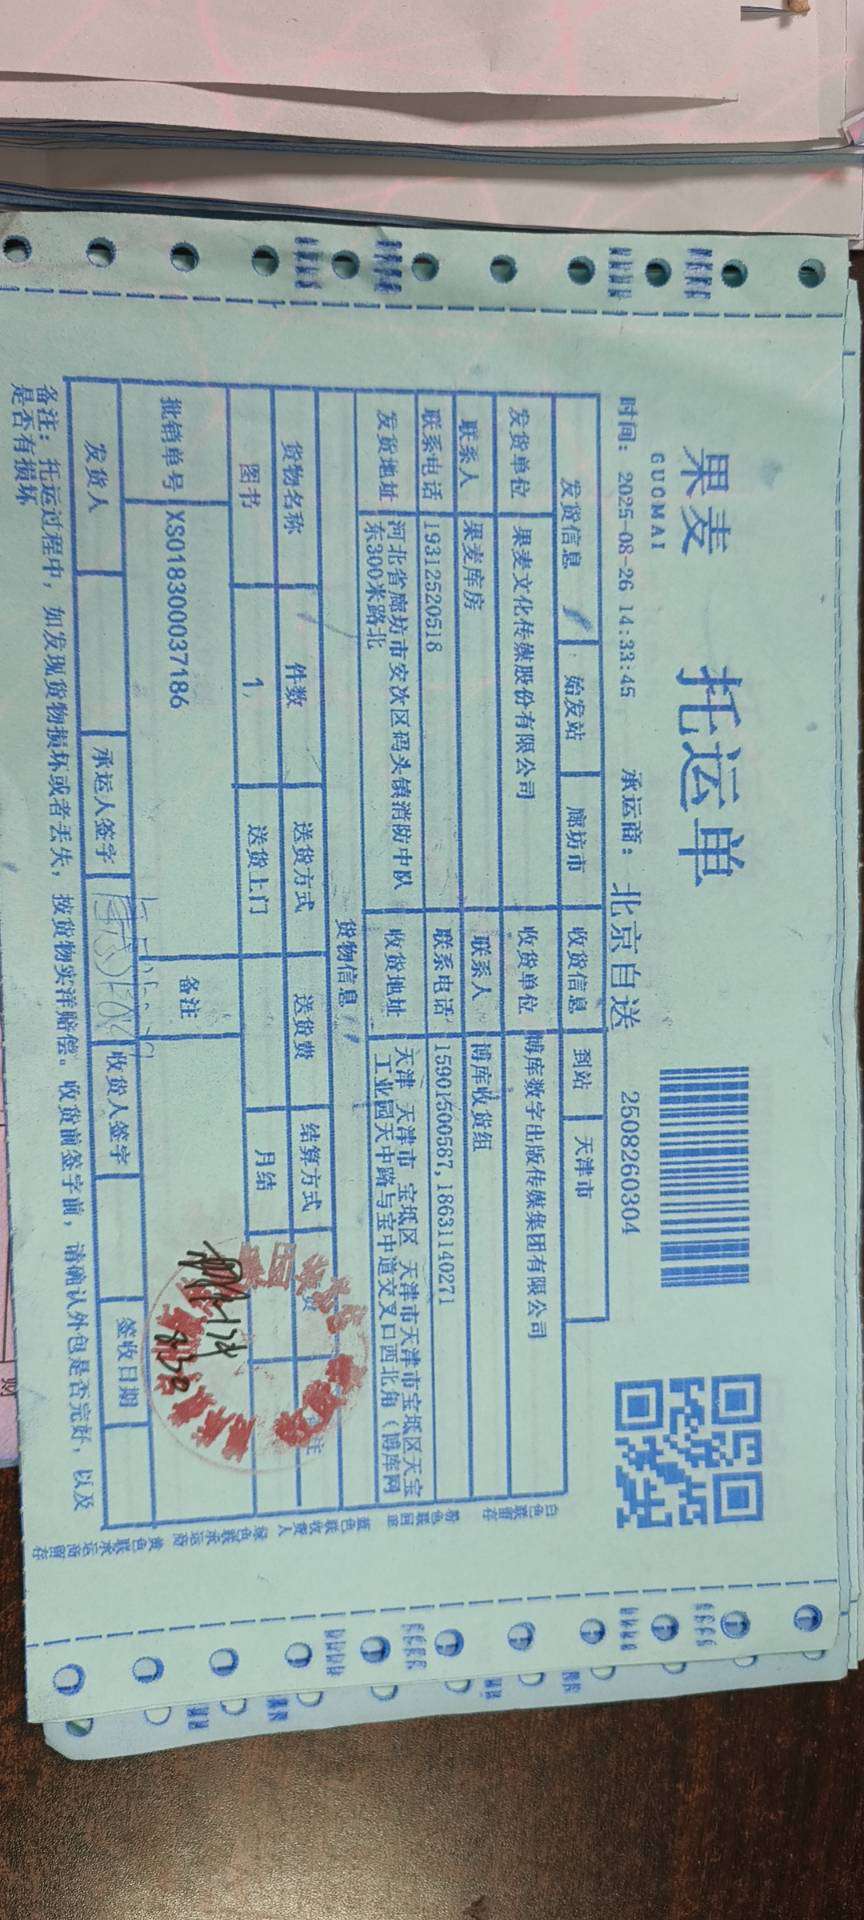 果麦
GUOMAI
托运单
时间: 2025-08-26 14:33:45 承运商: 北京自送 2508260304
发货信息 始发站 廊坊市 收货信息 到站 天津市
发货单位 果麦文化传媒股份有限公司 收货单位 博库数字出版传媒集团有限公司
联系人 果麦库房 联系人 博库收货组
联系电话 19312520518 联系电话 15901500587,18631140271
发货地址 河北省廊坊市安次区码头镇消防中队东300米路北 收货地址 天津 天津市 宝坻区 天津市天津市宝坻区天宝工业园天中路与宝中道交叉口西北角(博库网
货物信息
货物名称 件数 送货方式 送货费 结算方式
图书 1, 送货上门 月结
批销单号 XS018300037186 备注
发货人 承运人签字 收货人签字 签收日期
备注: 托运过程中, 如发现货物损坏或者丢失, 按货物实洋赔偿。收货前签字前, 请确认外包是否完好, 以及
是否有损坏
白色联留存 粉色联回单 蓝色联收货人 绿色联承运商 黄色联承运商留存